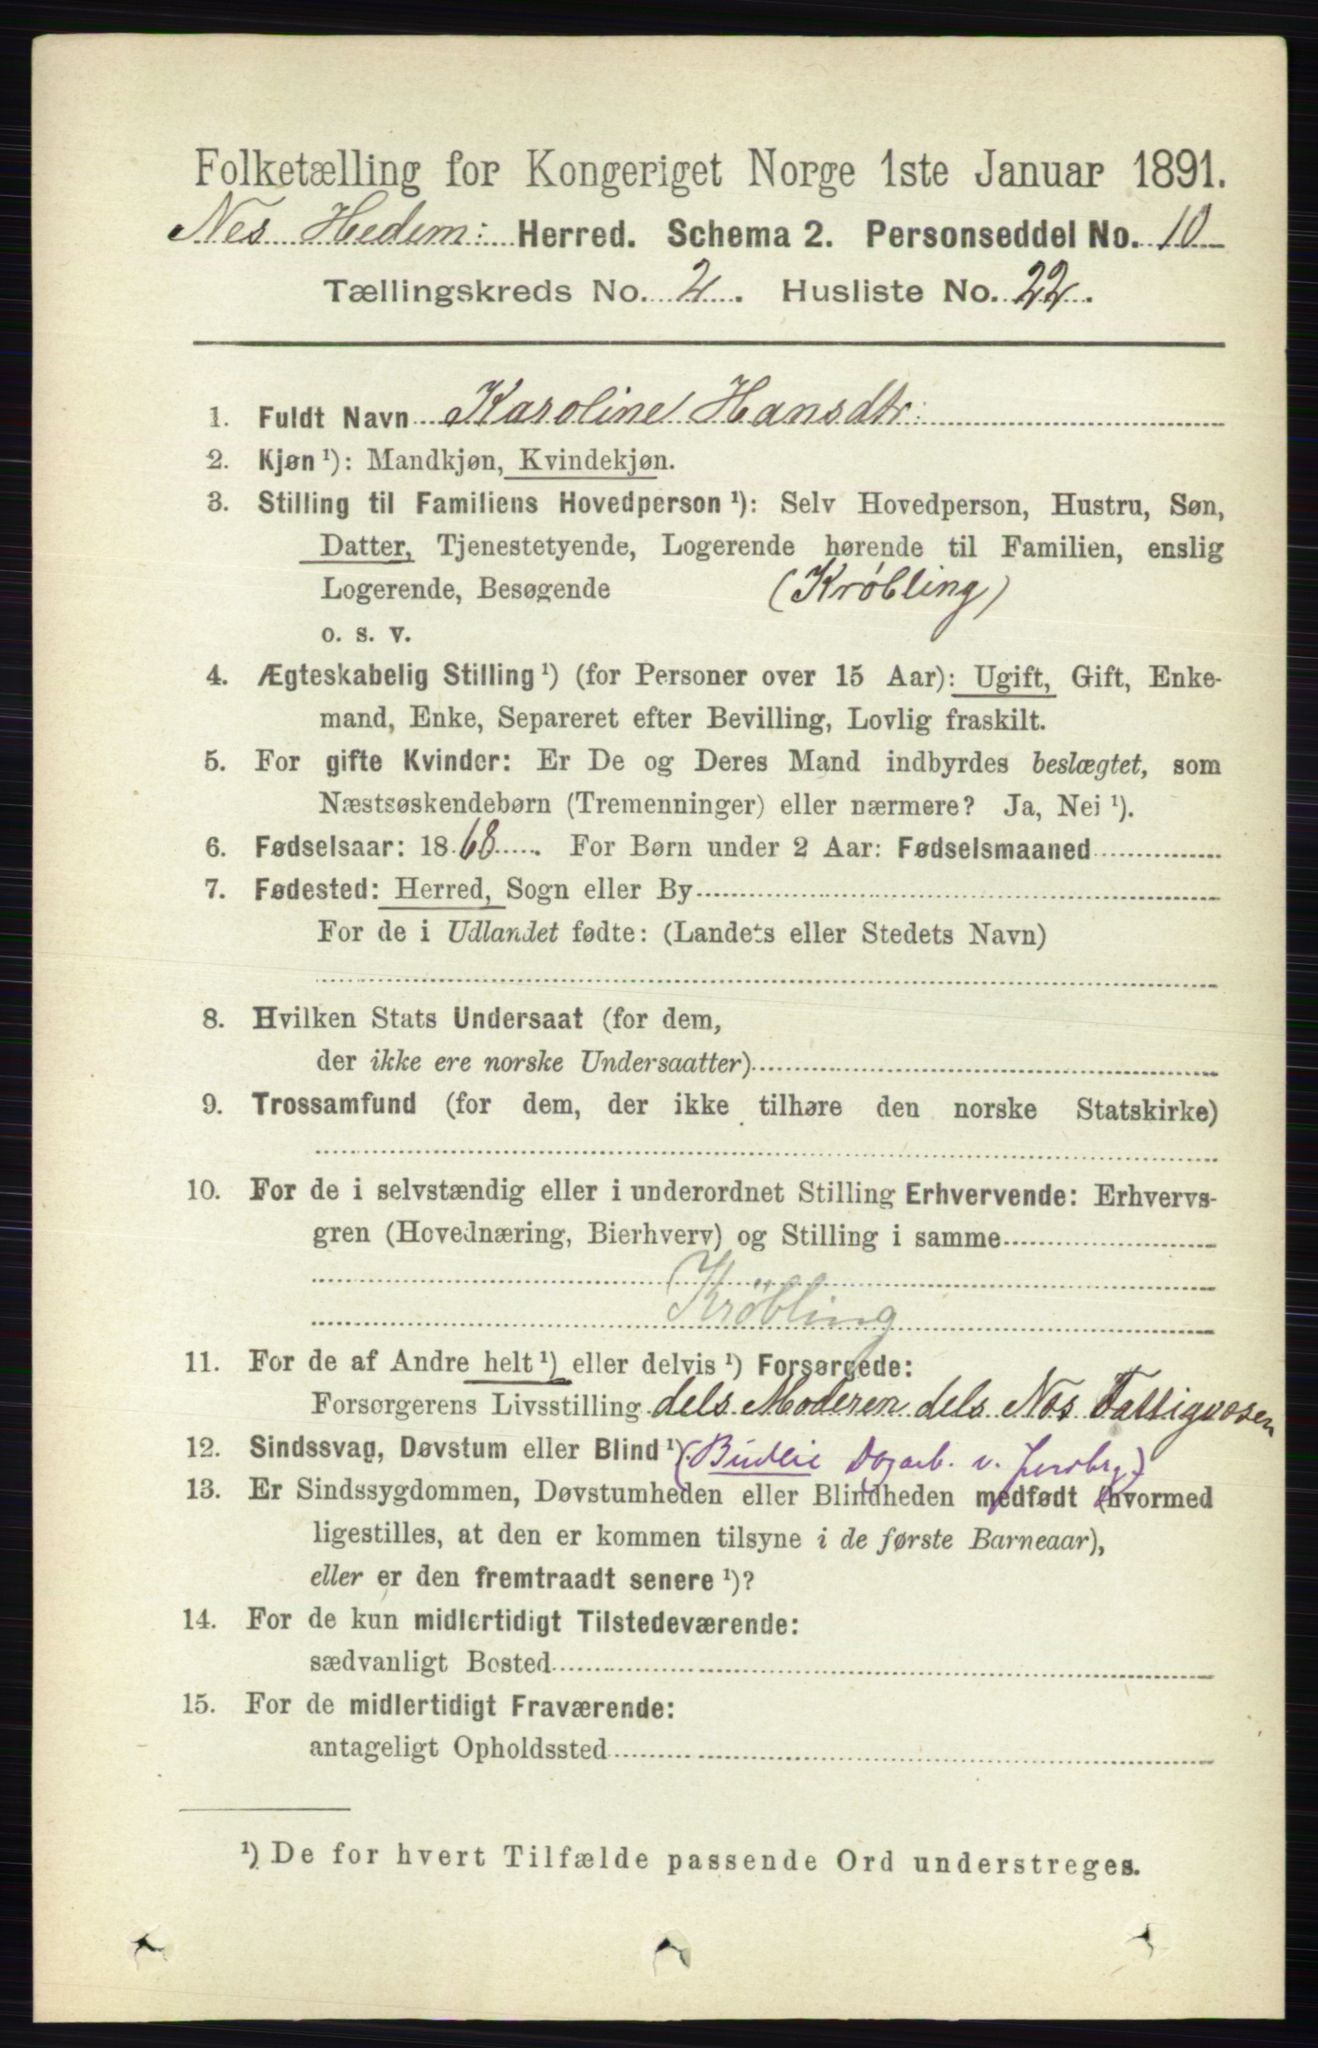 Folketælling for Kongeriget Norge 1ste Januar 1891.
Nes Hedem: Herred. Schema 2. Personseddel No. 10
Tællingskreds No. 2. Husliste No. 22.
1. Fuldt Navn Karoline Hansdtr:
2. Kjøn ¹): Mandkjøn, Kvindekjøn.
3. Stilling til Familiens Hovedperson ¹): Selv Hovedperson, Hustru, Søn,
Datter, Tjenestetyende, Logerende hørende til Familien, enslig
Logerende, Besøgende (Krøbling)
o. s. v.
4. Ægteskabelig Stilling ¹) (for Personer over 15 Aar): Ugift, Gift, Enke-
mand, Enke, Separeret efter Bevilling, Lovlig fraskilt.
5. For gifte Kvinder: Er De og Deres Mand indbyrdes beslægtet, som
Næstsøskendebørn (Tremenninger) eller nærmere? Ja, Nei ¹).
6. Fødselsaar: 1868. For Børn under 2 Aar: Fødselsmaaned
7. Fødested: Herred, Sogn eller By
For de i Udlandet fødte: (Landets eller Stedets Navn)
8. Hvilken Stats Undersaat (for dem,
der ikke ere norske Undersaatter)
9. Trossamfund (for dem, der ikke tilhøre den norske Statskirke)
10. For de i selvstændig eller i underordnet Stilling Erhvervende: Erhvervs-
gren (Hovednæring, Bierhverv) og Stilling i samme
Kröbling
11. For de af Andre helt ¹) eller delvis ¹) Forsørgede:
Forsorgerens Livsstilling dels Moderen dels Nes Fattigvæsen
12. Sindssvag, Døvstum eller Blind ¹). (Budeie Dagarb. v. Jordbrg)
13. Er Sindssygdommen, Døvstumheden eller Blindheden medfødt (hvormed
ligestilles, at den er kommen tilsyne i de første Barneaar),
eller er den fremtraadt senere ¹)?
14. For de kun midlertidigt Tilstedeværende:
sædvanligt Bosted
15. For de midlertidigt Fraværende:
antageligt Opholdssted
¹) De for hvert Tilfælde passende Ord understreges.